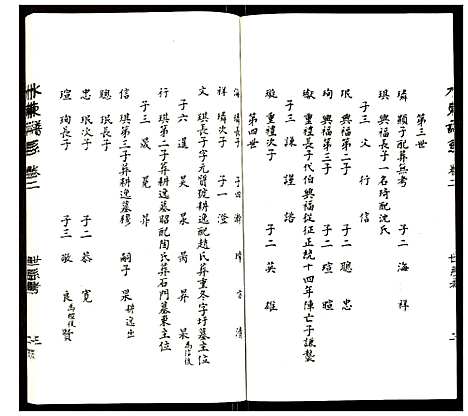 第三世
璘 顯子配葬無考 子二 海 祥
琪 興福長子一名時配沈氏
子三 文 行 信
珉 興福第二子 子二 聰 忠
珣 興福第三子 子二 瑄 暄
獄 重禮長子代伯興福從征正統十四年陳亡子謙鰲
子三 謙 謹 諮
璇 重禮次子 子二 英 雄
第四世
海 璘長子 子四
祥 璘次子 子一 澄
文 琪長子字元質號耕逸配趙氏葬重冬字圩墓主位
子六 暹 昊 昇 杲
行 琪第二子葬耕逸墓昭配陶氏葬石門墓東主位
子三 晟 冕 昇
信 琪第三子葬耕逸墓穆 嗣子 杲 耕逸出
聰 珉長子
忠 珉次子 子二 恭 寬
瑄 珣長子 子三 敬 良 賢
水東譜系 卷二
世系考